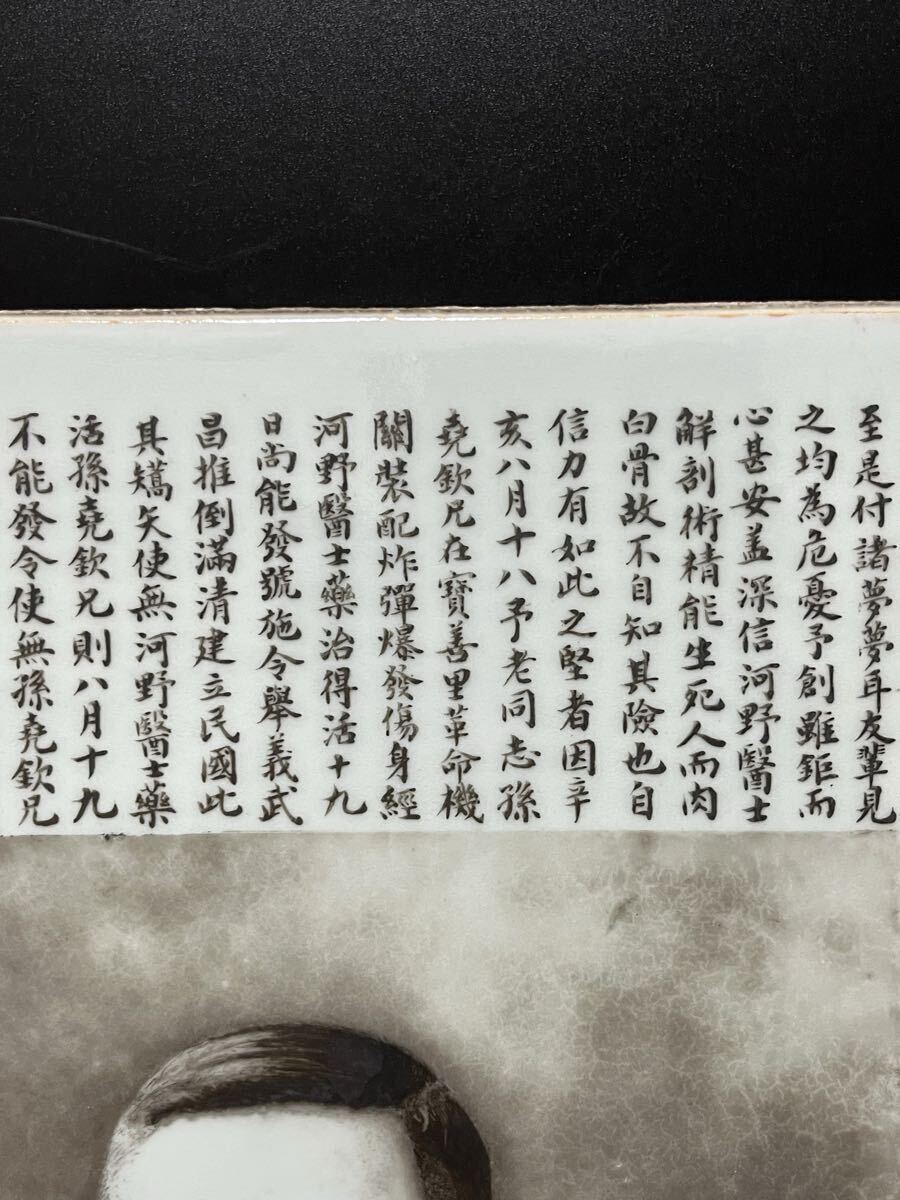 至是付諸夢夢耳友輩見
之均為危憂予創雖鉅而
心甚安盖深信河野醫士
解剖術精能生死人而肉
白骨故不自知其險也自
信力有如此之堅者因辛
亥八月十八予老同志孫
堯欽兄在寶善里革命機
關裝配炸彈爆發傷身經
河野醫士藥治得活十九
日尚能發號施令舉義武
昌推倒滿清建立民國此
其矯矢使無河野醫士藥
活孫堯欽兄則八月十九
不能發令使無孫堯欽兄